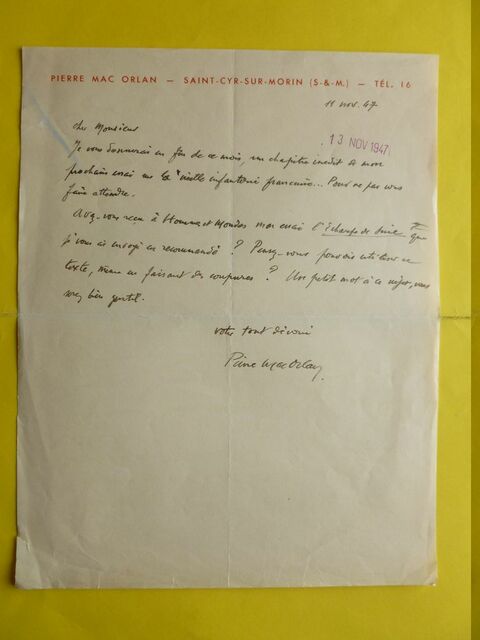 PIERRE MAC ORLAN — SAINT-CYR-SUR-MORIN (S-&-M.) — TÉL. 16
11 nov. 47
13 NOV 1947
cher Monsieur
Je vous donnerai en fin de ce mois, un chapitre inédit de mon
prochain essai sur la "vieille infanterie française... Pour ne pas vous
faire attendre.
Avez-vous reçu à Hommes et Mondes mon essai de Suie que
je vous ai envoyé en recommandé ? Pensez-vous pouvoir utiliser ce
texte, même en faisant des coupures ? Un petit mot à ce sujet, vous
serez bien gentil.
votre tout dévoué
Pierre Mac Orlan